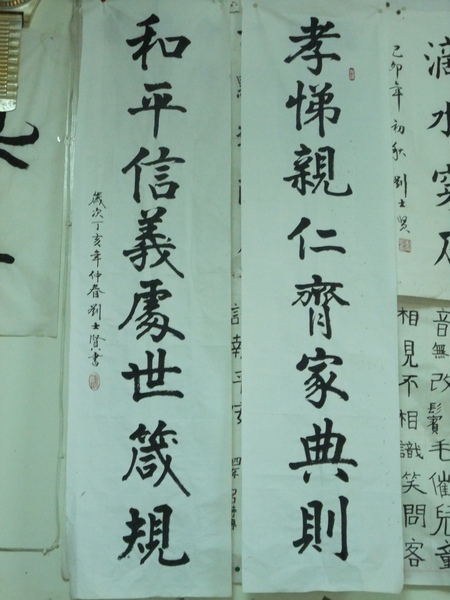 滴水穿石
己卯年初秋劉士賢
音無改鬢毛催兒童
相見不相識笑問客
孝悌親仁齊家典則
和平信義處世箴規
歲次丁亥年仲春劉士賢書